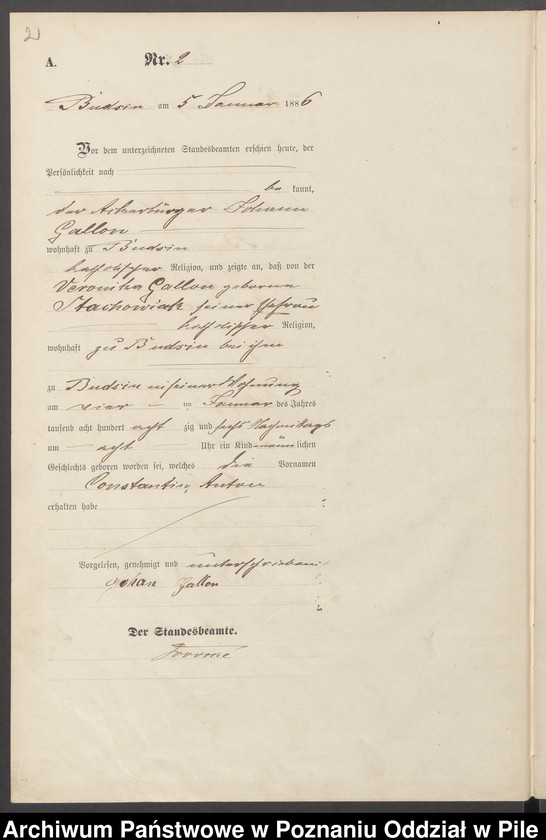 2
A.
Nr. 2
Budsin am 5 Januar 1886
Vor dem unterzeichneten Standesbeamten erschien heute, der
Persönlichkeit nach
be kannt,
der Ackerbürger Johann
Gallon
wohnhaft zu Budsin
katholischer Religion, und zeigte an, daß von der
Veronika Gallon geborene
Stachowiak seiner Ehefrau
katholischer Religion,
wohnhaft zu Budsin bei ihm
zu Budsin in seiner Wohnung
am vier ten Januar des Jahres
tausend acht hundert acht zig und sechs Nachmittags
um acht Uhr ein Kind männlichen
Geschlechts geboren worden sei, welches die Vornamen
Constantin, Anton
erhalten habe
Vorgelesen, genehmigt und unterschrieben
Johan Gallon
Der Standesbeamte.
Archiwum Państwowe w Poznaniu Oddział w Pile